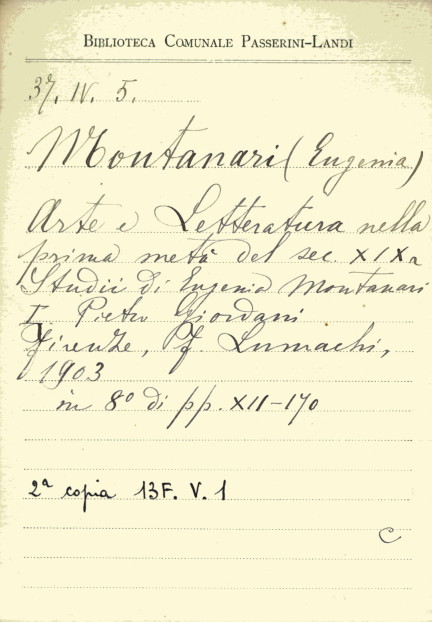 BIBLIOTECA COMUNALE PASSERINI-LANDI
37. IV. 5.
Montanari (Eugenia)
Arte e Letteratura nella
prima metà del sec. XIXa
Studii di Eugenia Montanari
I. Pietro Giordani
Firenze, F. Lumachi,
1903
in 8° di pp. XII-170
2ª copia 13F. V. 1
C